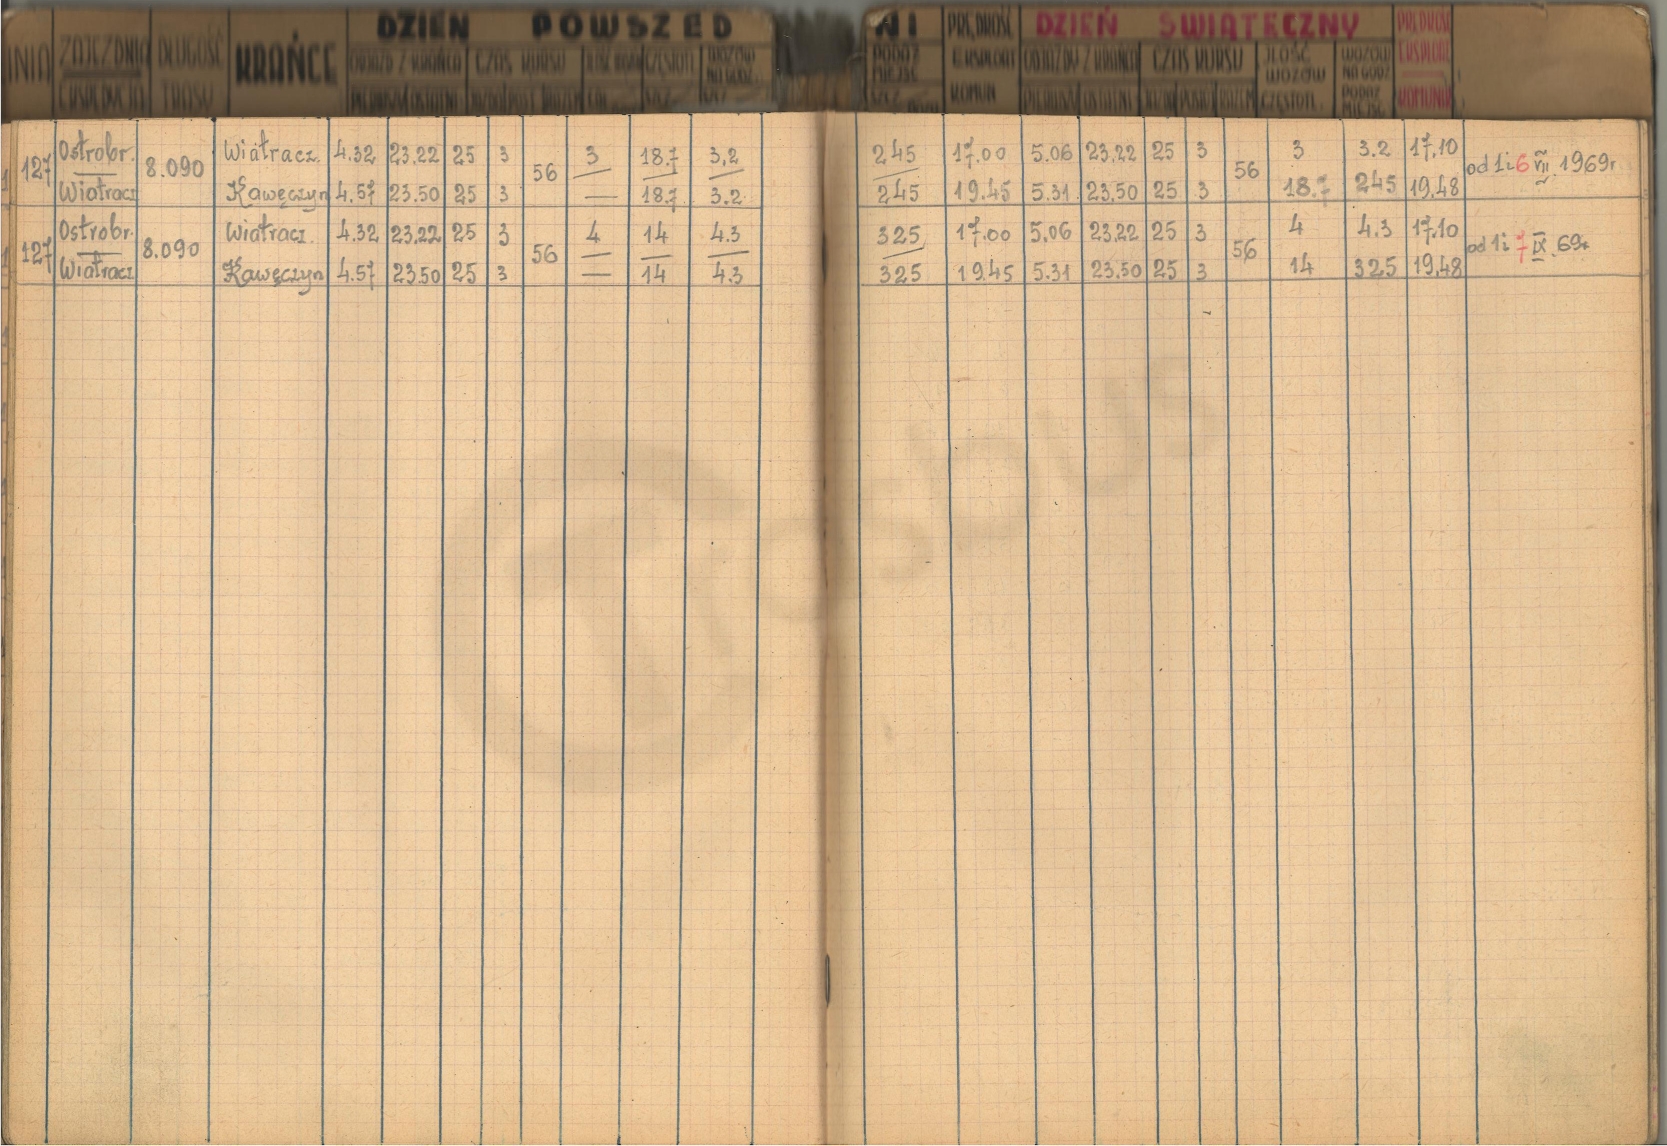 DZIEŃ POWSZED NI PRĘDKOŚĆ DZIEŃ ŚWIĄTECZNY PRĘDKOŚĆ
ZAJEZDNIA DŁUGOŚĆ KRAŃCE
ODJAZD Z KRAŃCA CZAS KURSU WOZÓW NA GODZ. PODAŻ MIEJSC ODJAZDY Z KRAŃCA CZAS KURSU ILOŚĆ WOZÓW WOZÓW NA GODZ
EKSPEDYCJA TRASY KOMUN CZĘSTOTL. PODAŻ MIEJSC
127 Ostrobr. 8.090 Wiatracz. 4.32 23.22 25 3 56 3 18.7 3,2 245 17.00 5.06 23,22 25 3 56 3 3.2 17,10 od 1 i 6 VII 1969r
Wiatracz Kawęczyn 4.57 23.50 25 3 — 18.7 3.2 245 19.45 5.31 23,50 25 3 18.7 245 19,48
127 Ostrobr. 8.090 Wiatracz. 4.32 23,22 25 3 56 4 14 4.3 325 17.00 5.06 23,22 25 3 56 4 4.3 17.10 od 1 i 7 IX 69r
Wiatracz Kawęczyn 4.57 23.50 25 3 — 14 4.3 325 19.45 5.31 23.50 25 3 14 325 19,48
Trasbus